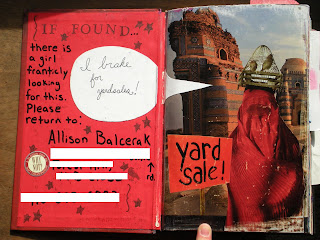 {IF FOUND...
there is
a girl
franticly
looking
for this.
Please
return to:
Allison Balcerak
I brake
for
yardsales!!
yard
sale!